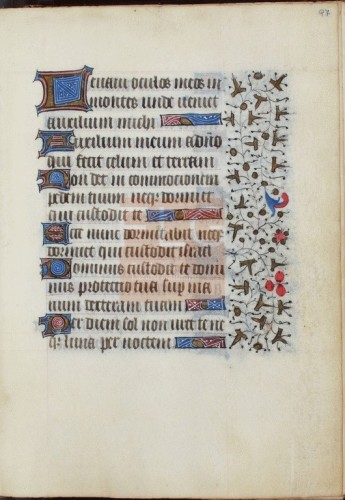 97
Leuaui oculos meos in
montes unde ueniet
auxilium michi
Auxilium meum a dno
qui fecit celum et terram
Non det in commocionem
pedem tuum neqz dormitet
qui custodit te
Ecce non dormitabit neqz
dormiet qui custodit israel
Dominus custodit te domi
nus protectio tua sup ma
num dexteram tuam
Per diem sol non uret te ne
qz luna per noctem